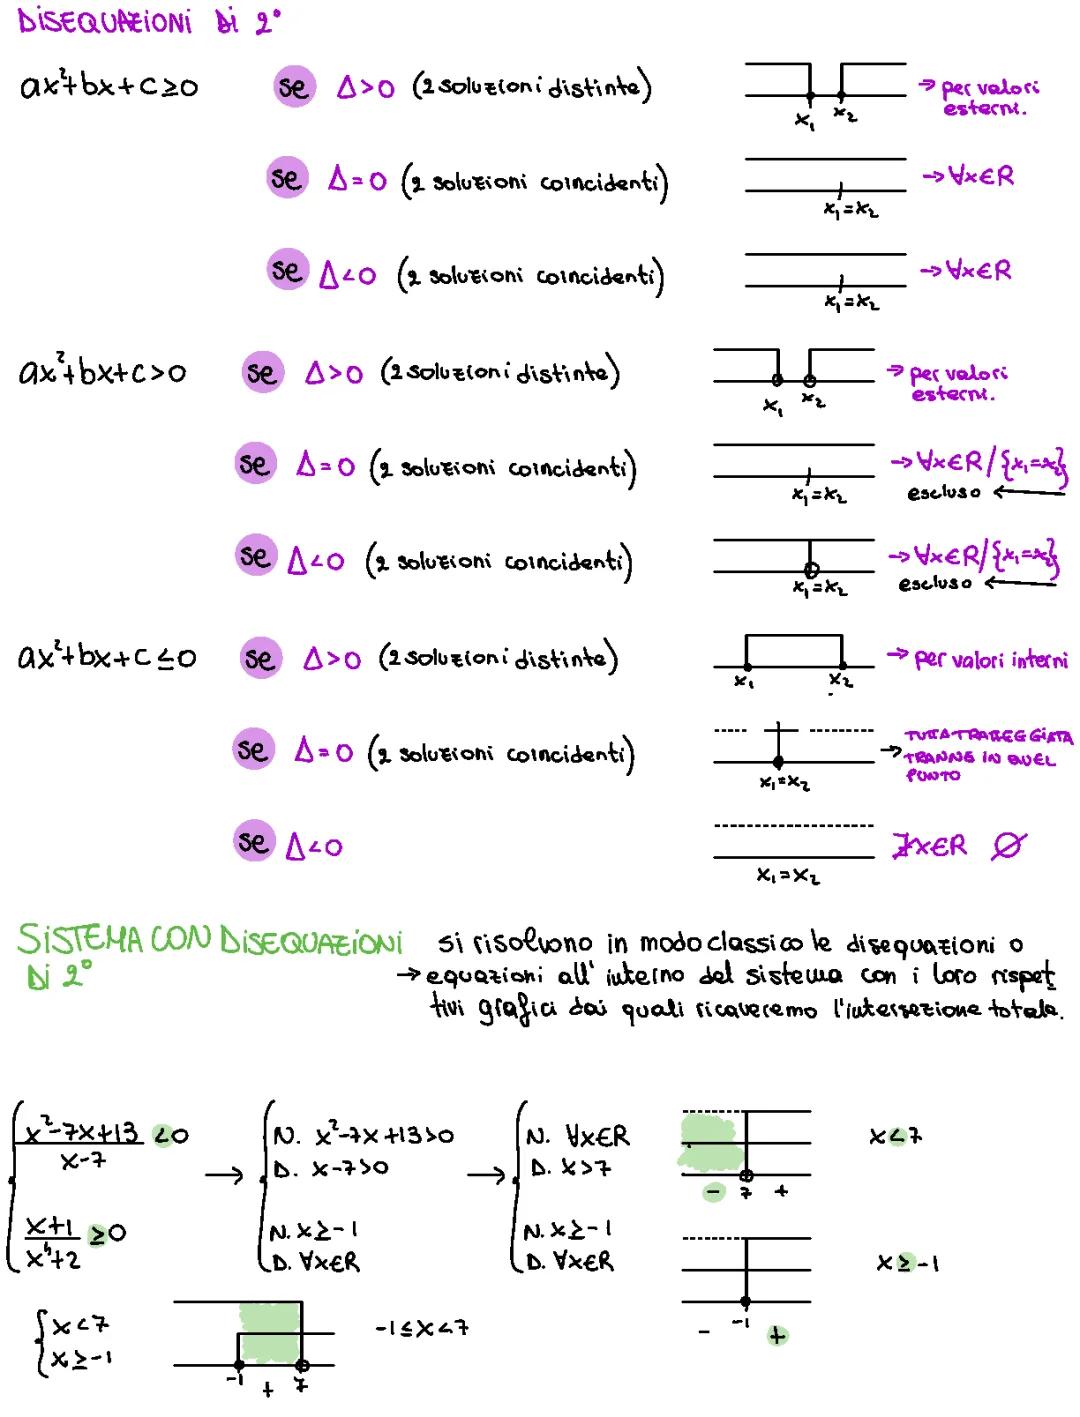 DISEQUAZIONI DI 2°
ax²+bx+c≥0 se Δ>0 (2 soluzioni distinte) x₁ x₂ → per valori esterni.
se Δ=0 (2 soluzioni coincidenti) x₁=x₂ → ∀x∈R
se Δ<0 (2 soluzioni coincidenti) x₁=x₂ → ∀x∈R
ax²+bx+c>0 se Δ>0 (2 soluzioni distinte) x₁ x₂ → per valori esterni.
se Δ=0 (2 soluzioni coincidenti) x₁=x₂ → ∀x∈R/{x₁=x₂}
escluso ←
se Δ<0 (2 soluzioni coincidenti) x₁=x₂ → ∀x∈R/{x₁=x₂}
escluso ←
ax²+bx+c≤0 se Δ>0 (2 soluzioni distinte) x₁ x₂ → per valori interni
se Δ=0 (2 soluzioni coincidenti) x₁=x₂ → TUTTA TRATTEGGIATA
TRANNE IN QUEL
PUNTO
se Δ<0 x₁=x₂ ∄x∈R ∅
SISTEMA CON DISEQUAZIONI
DI 2°
si risolvono in modo classico le disequazioni o
→ equazioni all'interno del sistema con i loro rispet
tivi grafici dai quali ricaveremo l'intersezione totale.
{ x²-7x+13 / x-7 <0 → { N. x²-7x+13>0 → { N. ∀x∈R
D. x-7>0 D. x>7
- 7 + x<7
x+1 / x⁴+2 ≥0 N. x≥-1 N. x≥-1
D. ∀x∈R D. ∀x∈R
- -1 + x≥-1
{ x<7
x≥-1
-1 + 7
-1≤x<7